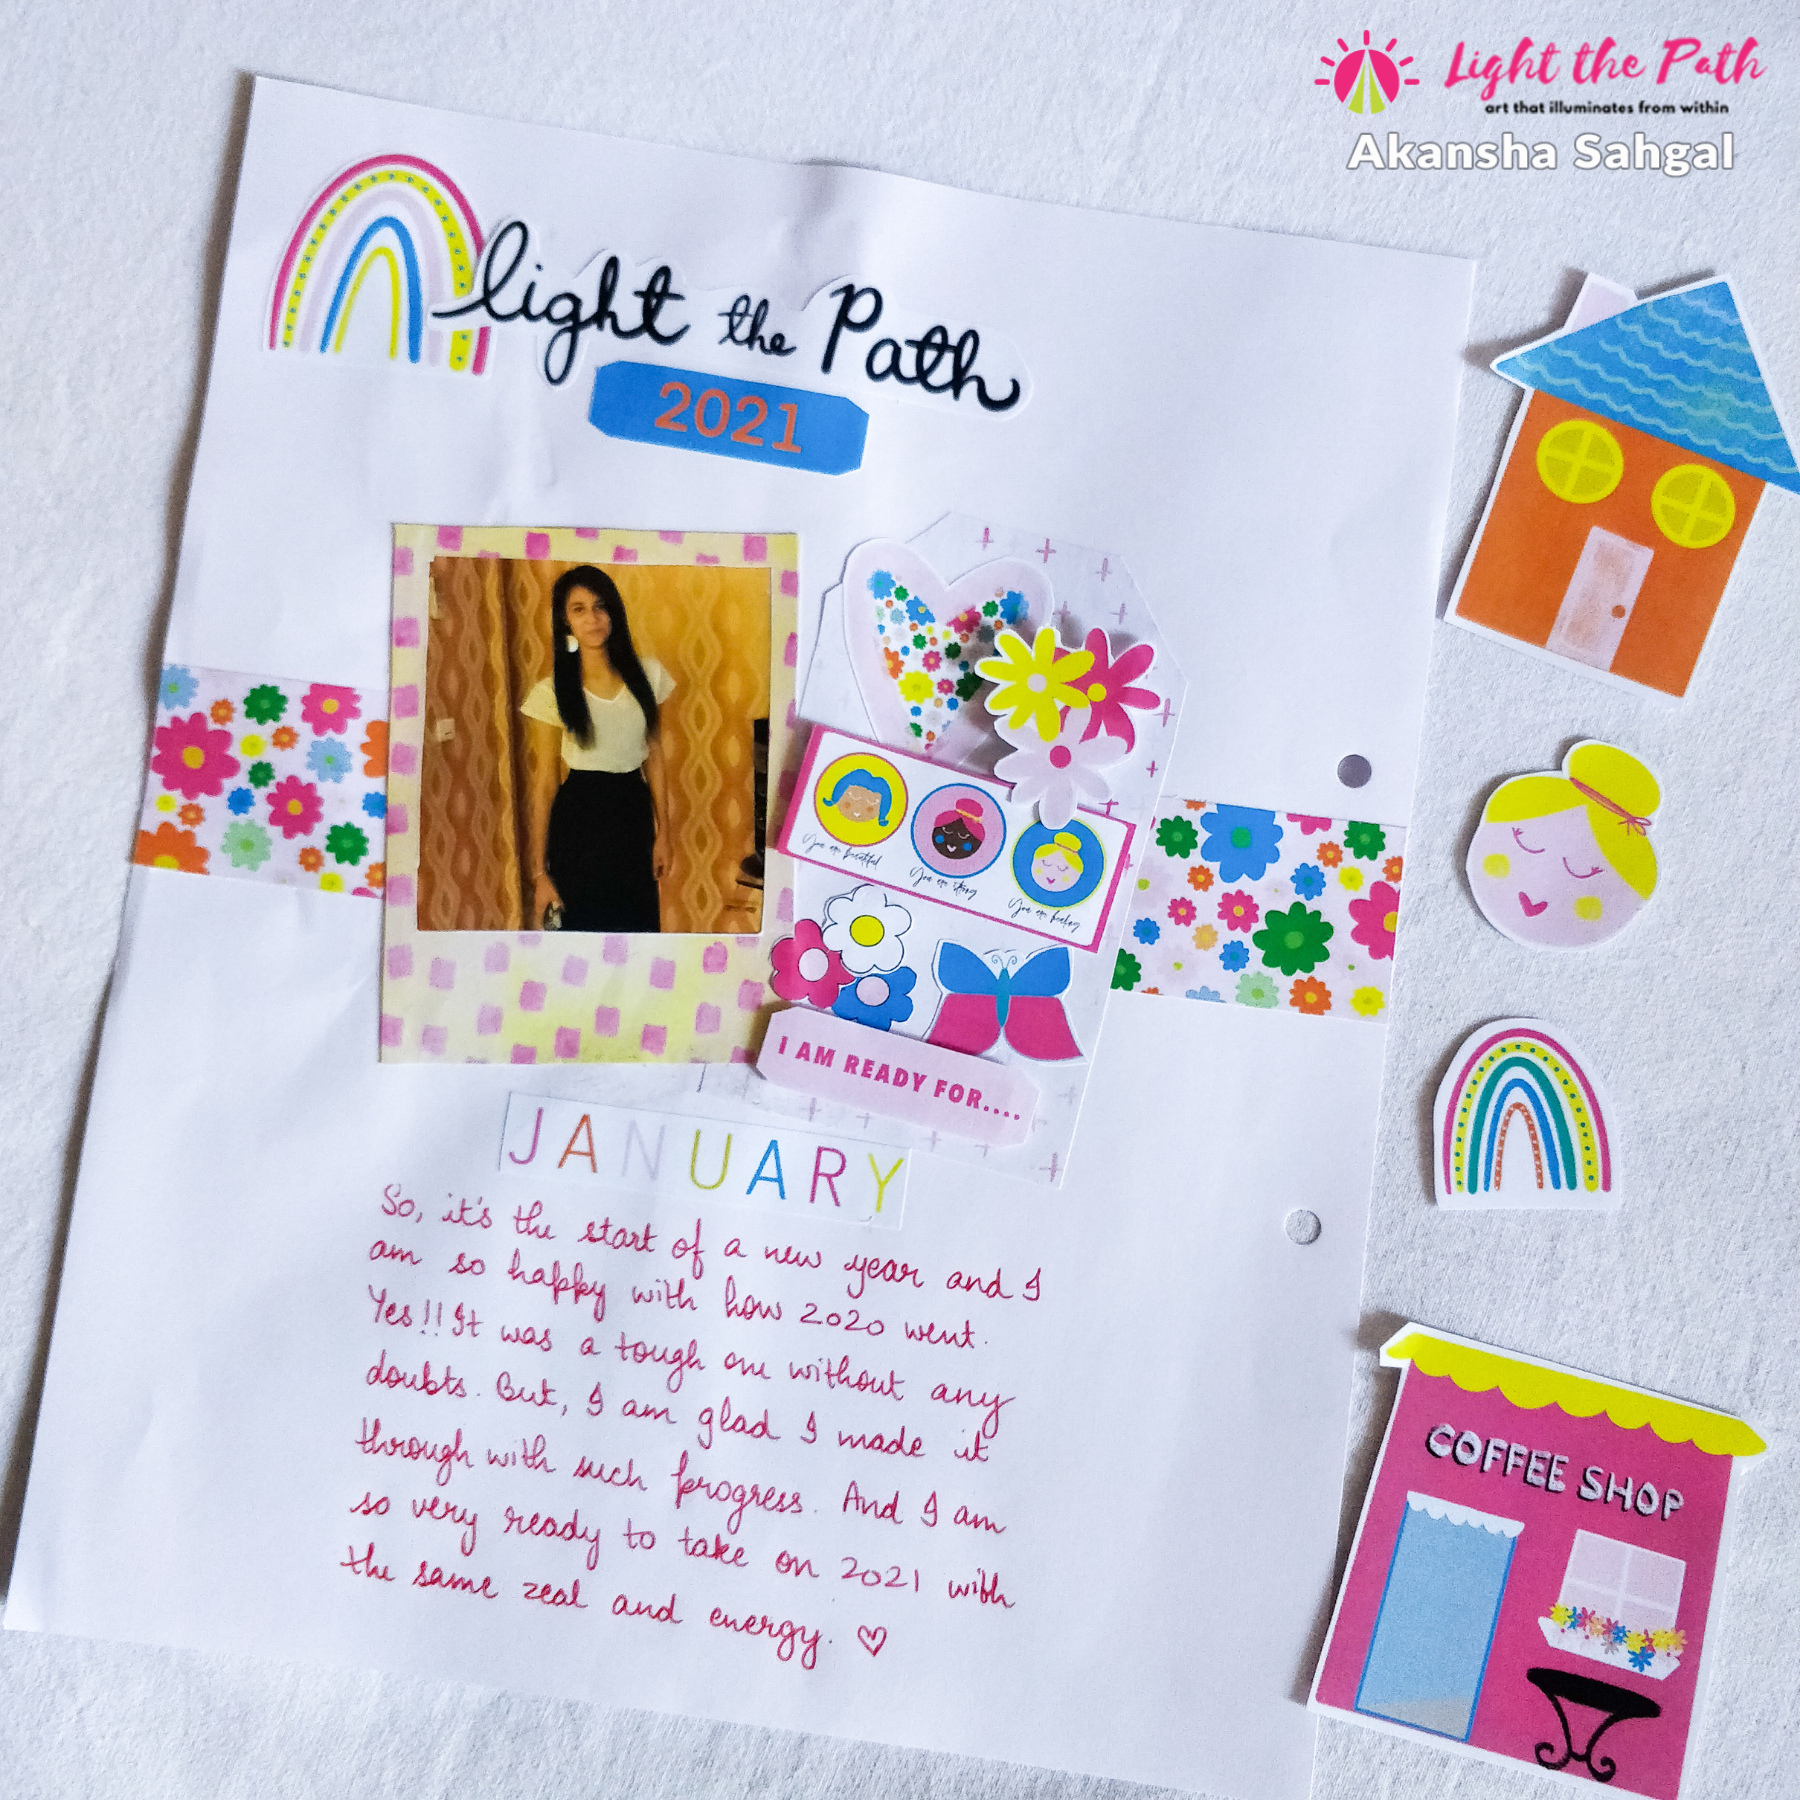 Light the Path
art that illuminates from within
Akansha Sahgal
light the Path
2021
You are beautiful
You are strong
You are
I AM READY FOR....
JANUARY
So, it's the start of a new year and I
am so happy with how 2020 went.
Yes!! It was a tough one without any
doubts. But, I am glad I made it
through with such progress. And I am
so very ready to take on 2021 with
the same zeal and energy. ♡
COFFEE SHOP